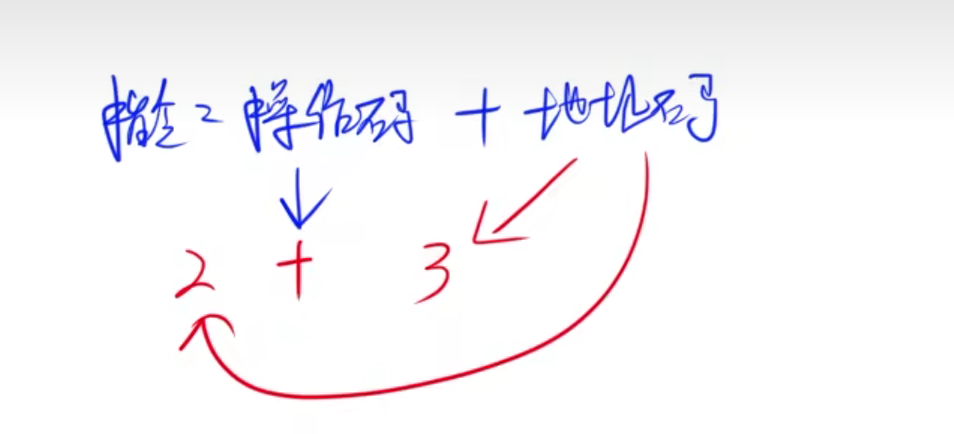 指令=操作码 + 地址码
2 + 3